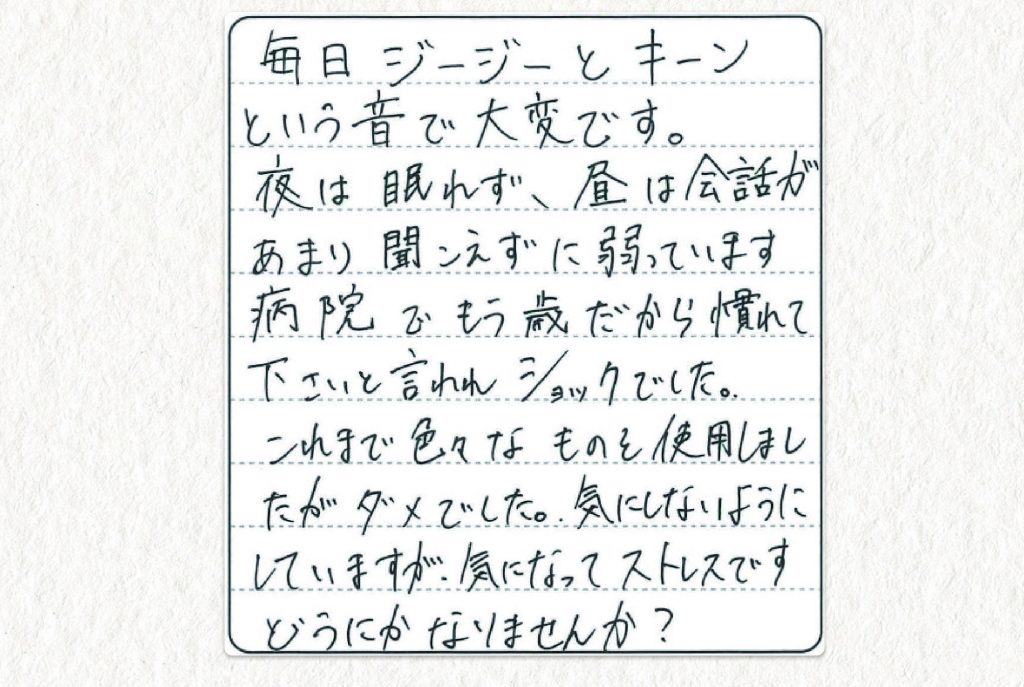 毎日 ジージーと キーン
という音で 大変です。
夜は 眠れず、昼は会話が
あまり 聞こえずに 弱っています
病院で もう歳だから慣れて
下さいと 言われ ショックでした。
これまで 色々な ものを 使用しまし
たが ダメでした。気にしないように
していますが、気になって ストレスです
どうにか なりませんか?